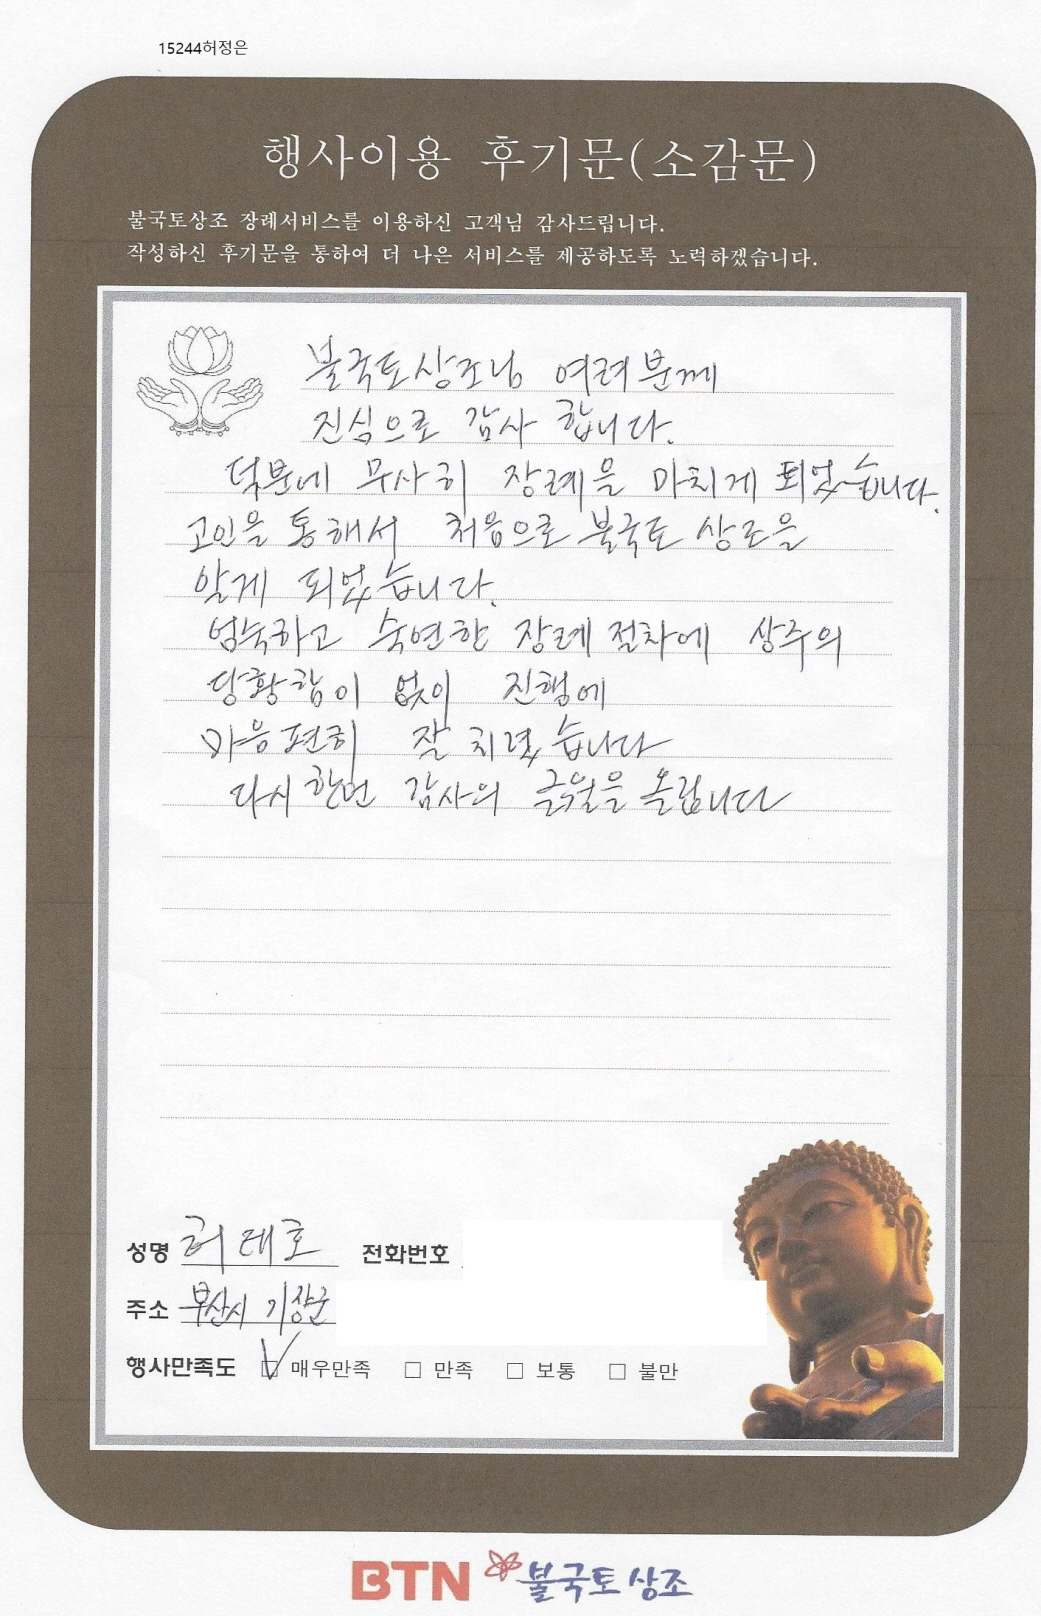 15244허정은
행사이용 후기문(소감문)
불국토상조 장례서비스를 이용하신 고객님 감사드립니다.
작성하신 후기문을 통하여 더 나은 서비스를 제공하도록 노력하겠습니다.
불국토상조님 여려분께
진심으로 감사 합니다.
덕분에 무사히 장례을 마치게 되었습니다.
고인을 통해서 처음으로 불국토 상조을
알게 되었습니다.
엄숙하고 숙연한 장례 절차에 상주의
당황함이 없이 진행에
마음편히 잘 치렀습니다
다시한번 감사의 글월을 올립니다
성명 허대호 전화번호
주소 부산시 기장군
행사만족도 ☑ 매우만족 □ 만족 □ 보통 □ 불만
BTN 불국토상조